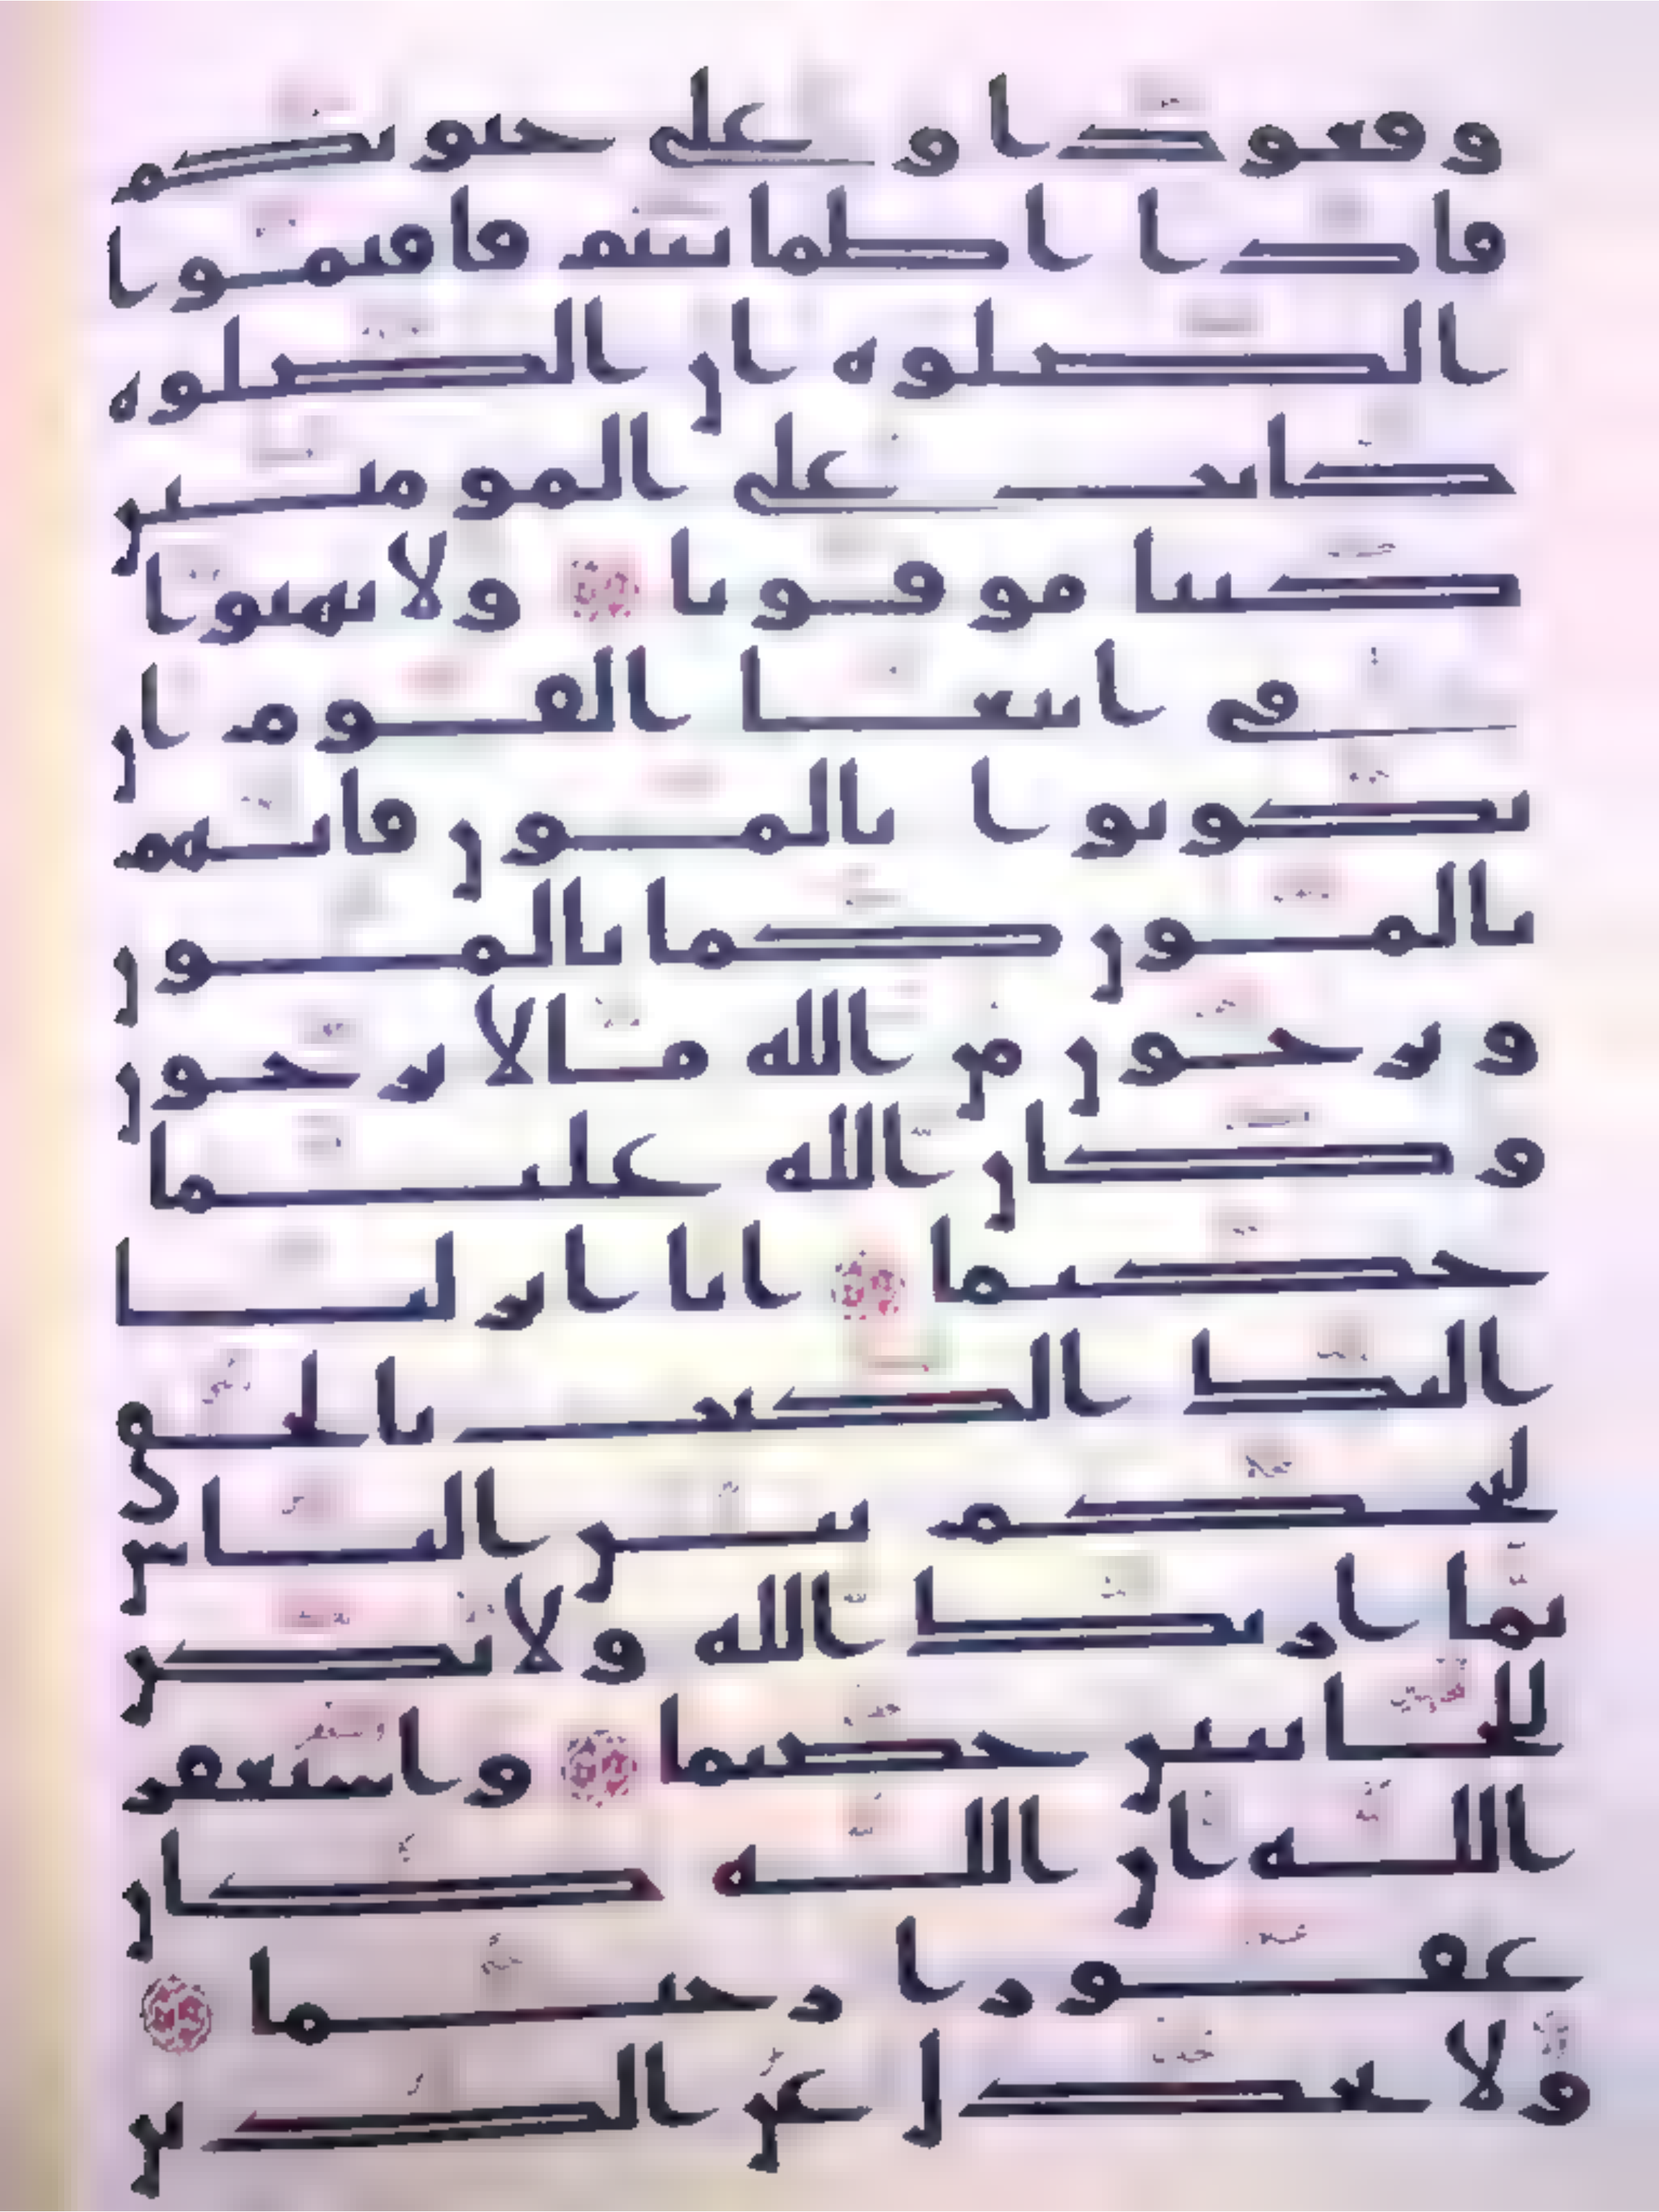 وقعودا وعلى جنوبكم
فاذا اطماننتم فاقيموا
الصلوه ان الصلوه
كانت على المومنين
كتبا موقوتا ولا تهنوا
في ابتغا القوم ان
تكونوا تالمون فانهم
يالمون كما تالمون
وترجون من الله ما لا يرجون
وكان الله عليما
حكيما انا انزلنا
اليك الكتب بالحق
لتحكم بين الناس
بما اريك الله ولا تكن
للخاينين خصيما واستغفر
الله ان الله كان
غفورا رحيما
ولا تجدل عن الذين